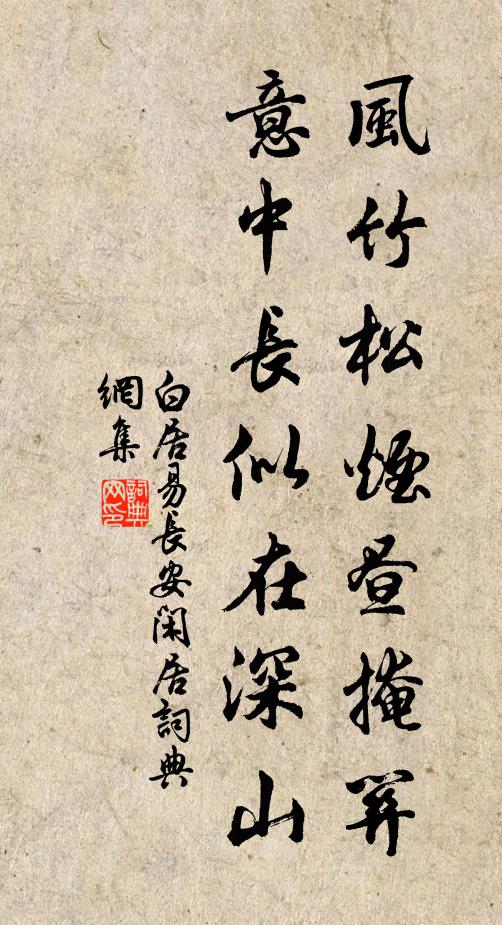 風竹松煙晝掩關
意中長似在深山
白居易長安閑居詞典
網集
詞典
网印